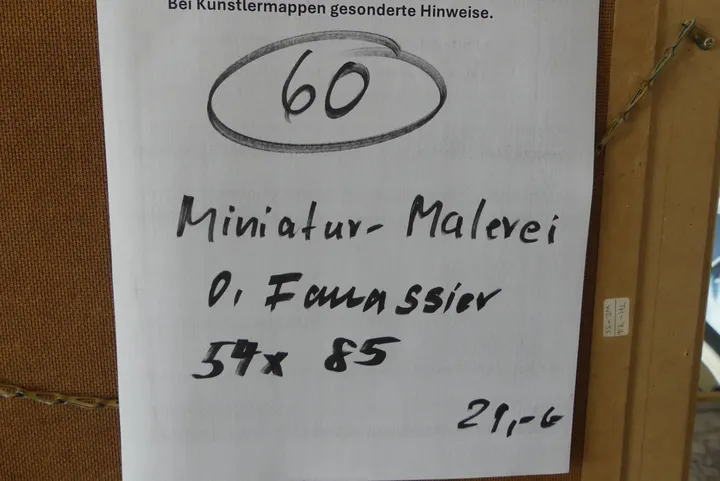 Bei Künstlermappen gesonderte Hinweise.
60
Miniatur- Malerei
O. Fanassier
54x 85
29,-€